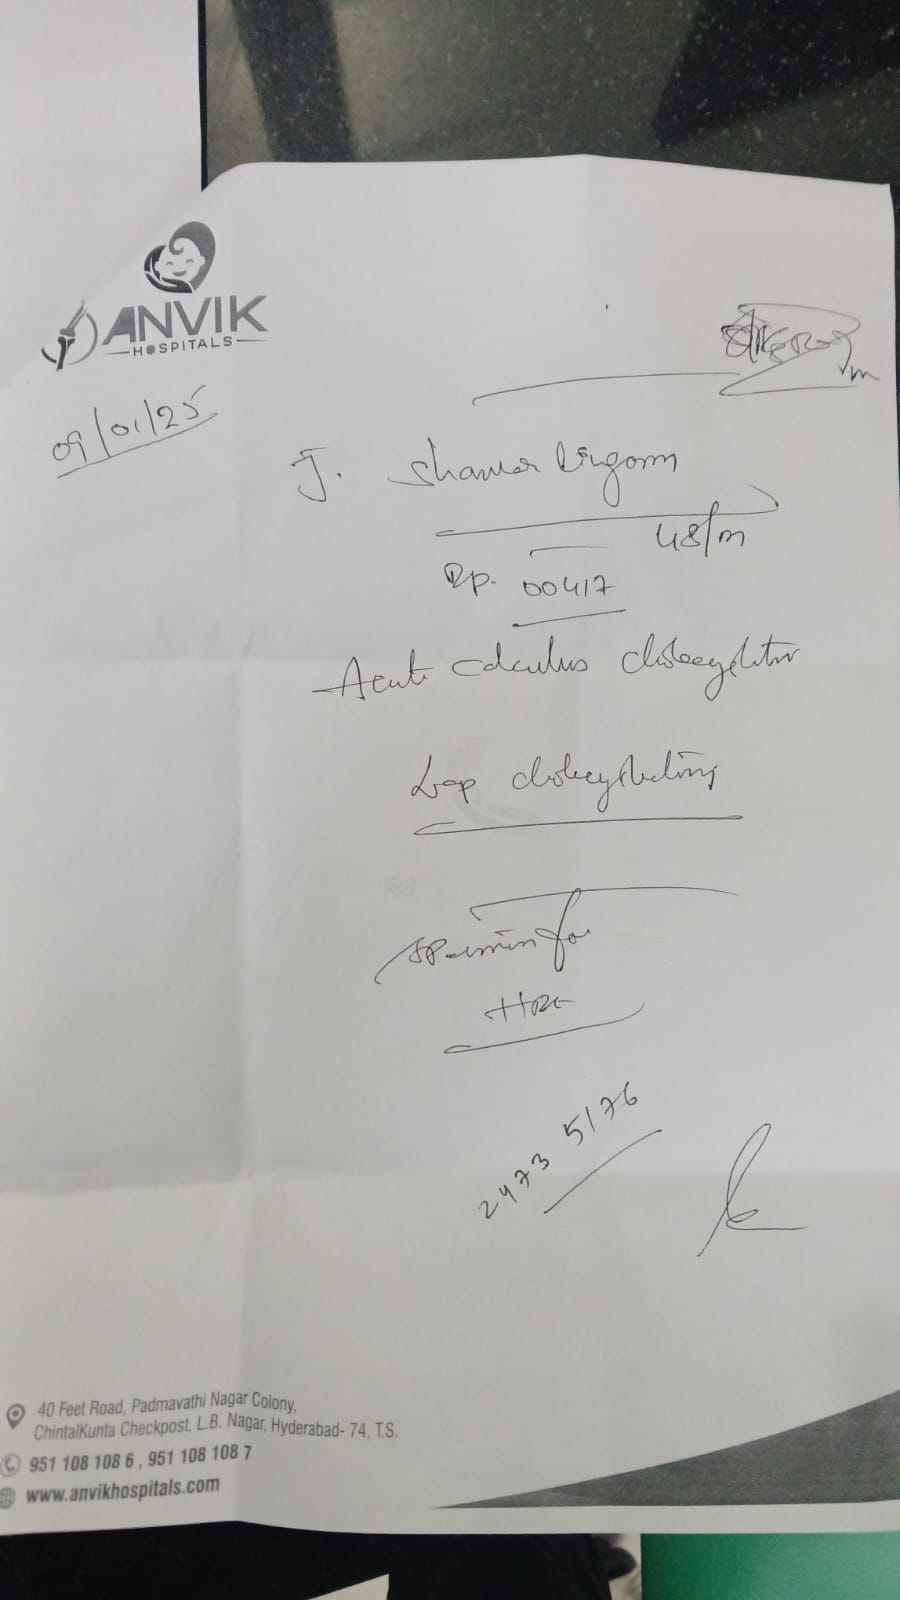 ANVIK
HOSPITALS
09/01/25
J. Shamalingam
48/m
Ip. 00417
Acute calculus cholecystitis
Lap cholecystectomy
Specimen for
HPE
2473 5176
40 Feet Road, Padmavathi Nagar Colony,
ChintalKunta Checkpost, L.B. Nagar, Hyderabad- 74, T.S.
951 108 108 6 , 951 108 108 7
www.anvikhospitals.com